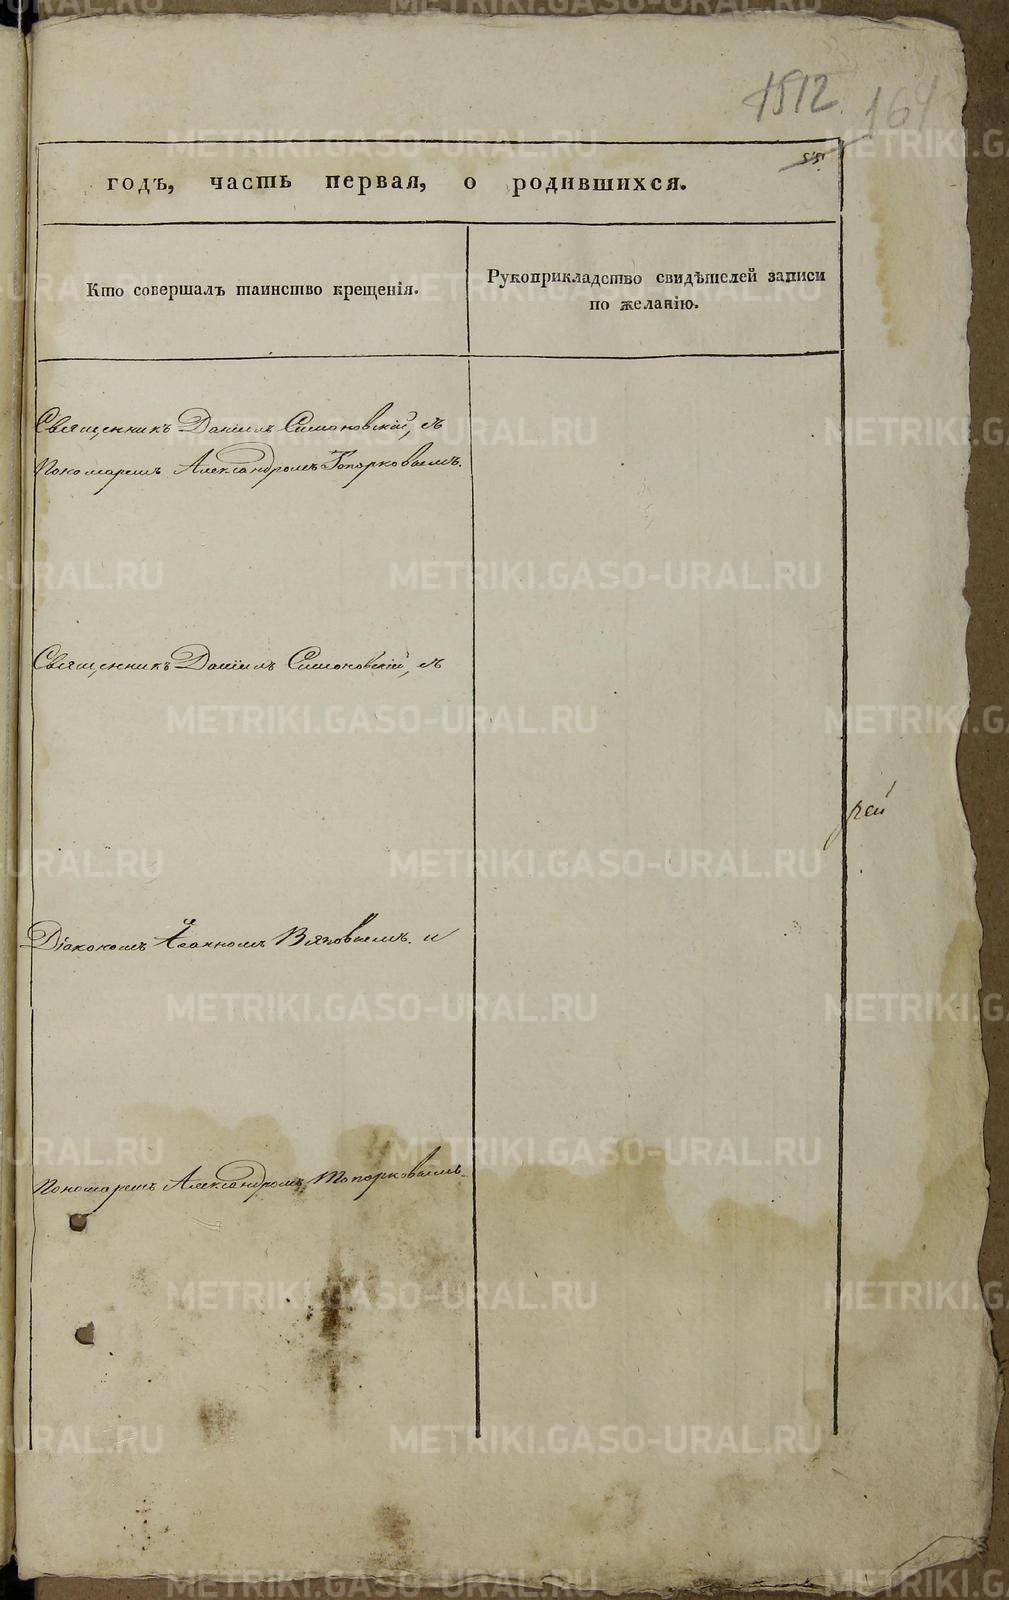 1512. 164
годъ, часть первая, о родившихся.
Кто совершалъ таинство крещенія.
Рукоприкладство свидѣтелей записи
по желанію.
Священникъ Даніилъ Симоновскій, съ
Пономаремъ Александромъ Топорковымъ.
Священникъ Даніилъ Симоновскій, съ
рей
Діакономъ Іоанномъ Вязовымъ. и
Пономаремъ Александромъ Топорковымъ.
METRIKI.GASO-URAL.RU